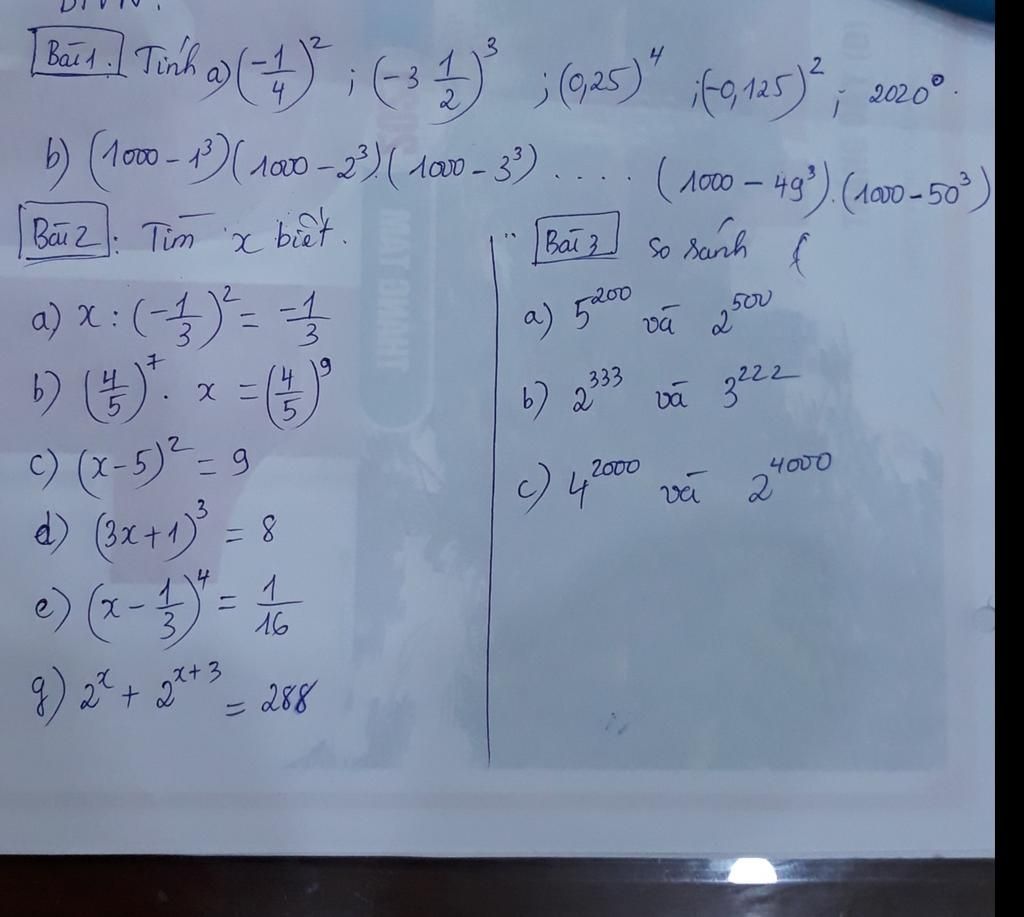 Bài 1. Tính a) (-1/4)² ; (-3 1/2)³ ; (0,25)⁴ ; (-0,125)² ; 2020⁰.
b) (1000 - 1³)(1000 - 2³).(1000 - 3³) ..... (1000 - 49³).(1000 - 50³)
Bài 2: Tìm x biết.
a) x : (-1/3)² = -1/3
b) (4/5)⁷ . x = (4/5)⁹
c) (x - 5)² = 9
d) (3x + 1)³ = 8
e) (x - 1/3)⁴ = 1/16
g) 2ˣ + 2ˣ⁺³ = 288
Bài 3 so sánh
a) 5²⁰⁰ và 2⁵⁰⁰
b) 2³³³ và 3²²²
c) 4²⁰⁰⁰ và 2⁴⁰⁰⁰